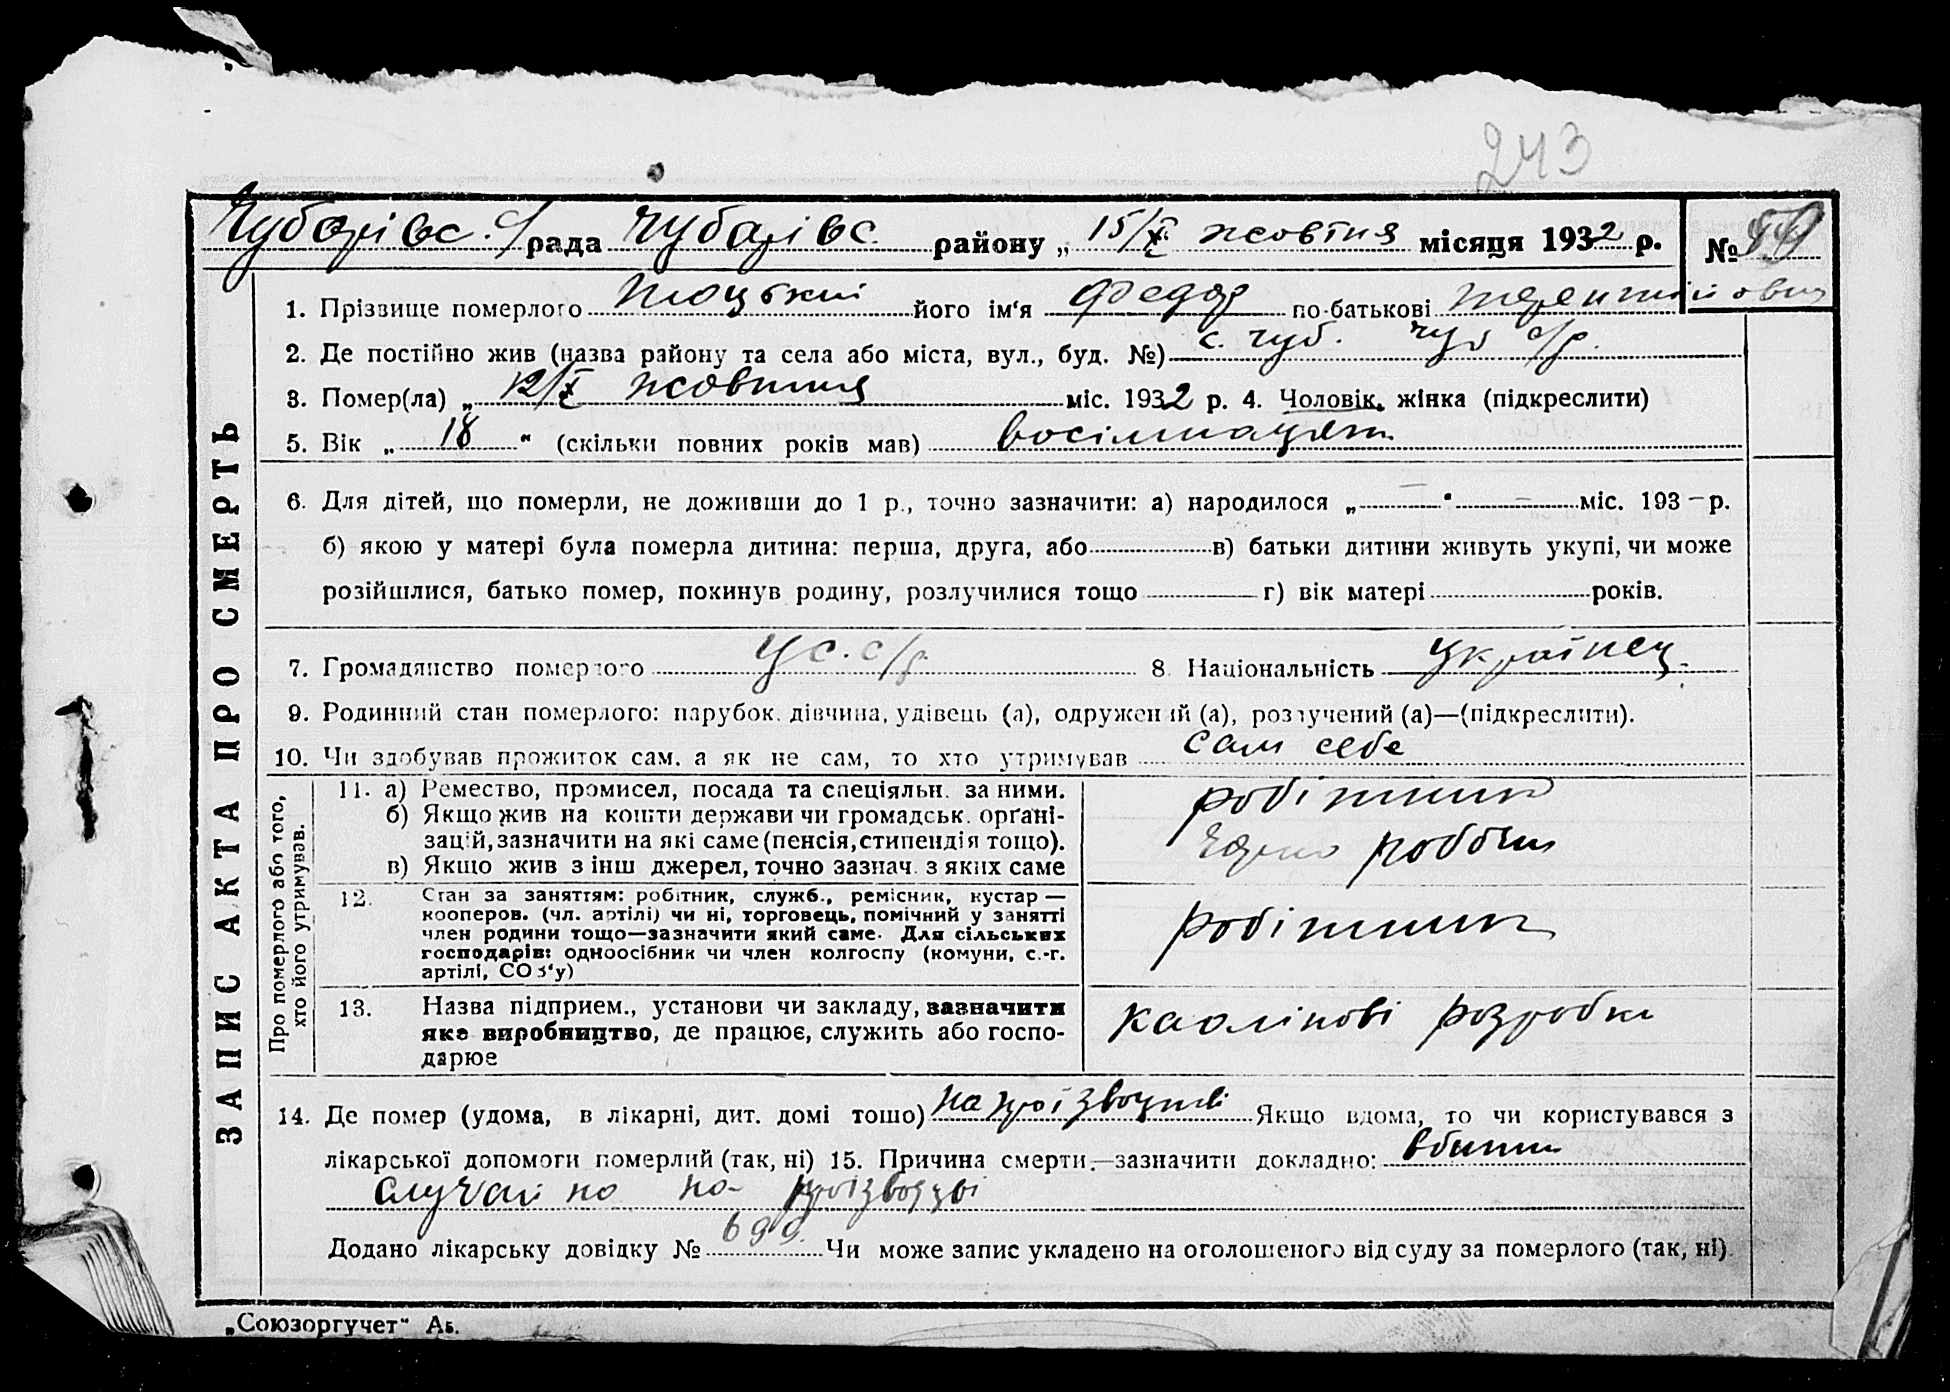 243
Чубарівс. с/рада Чубарівс. району „ 15/X жовтня місяця 1932 р. №
1. Прізвище померлого його ім‘я Федор по-батькові
2. Де постійно жив (назва району та села або міста, вул., буд. №) с. Чуб. Чуб с/р.
3. Помер(ла) „ 12/X жовтня міс. 1932 р. 4. Чоловік, жінка (підкреслити)
5. Вік „ 18 “ (скільки повних років мав) восімнацять
6. Для дітей, що померли, не доживши до 1 р., точно зазначити: а) народилося „ — “ — міс. 193 – р.
б) якою у матері була померла дитина: перша, друга, або в) батьки дитини живуть укупі, чи може
розійшлися, батько помер, покинув родину, розлучилися тощо г) вік матері років.
7. Громадянство померлого УС.С/р. 8 Національність Українец.
9. Родинний стан померлого: парубок, дівчина, удівець (а), одружений (а), розлучений (а)—(підкреслити).
10. Чи здобував прожиток сам, а як не сам, то хто утримував сам себе
ЗАПИС АКТА ПРО СМЕРТЬ
Про померлого або того,
хто його утримував.
11. а) Ремество, промисел, посада та спеціяльн. за ними. робітник
б) Якщо жив на кошти держави чи громадськ. орґані-
зацій, зазначити на які саме (пенсія, стипендія тощо). роботи
в) Якщо жив з інш джерел, точно зазнач. з яких саме
12. Стан за заняттям: робітник, служб., ремісник, кустар —
кооперов. (чл. артілі) чи ні, торговець, помічний у занятті
член родини тощо—зазначити який саме. Для сільських
господарів: одноосібник чи член колгоспу (комуни, с.-г.
артілі, СОЗ‘у) робітник
13. Назва підприєм., установи чи закладу, зазначити
яке виробництво, де працює, служить або госпо-
дарює каолінові розробки
14. Де помер (удома, в лікарні, дит. домі тощо) на проізводстві Якщо вдома, то чи користувався з
лікарської допомоги померлий (так, ні) 15. Причина смерти.—зазначити докладно: вбитий
случайно на проізводзві
Додано лікарську довідку № 699. Чи може запис укладено на оголошеного від суду за померлого (так, ні)
„Союзоргучет“ Аб.